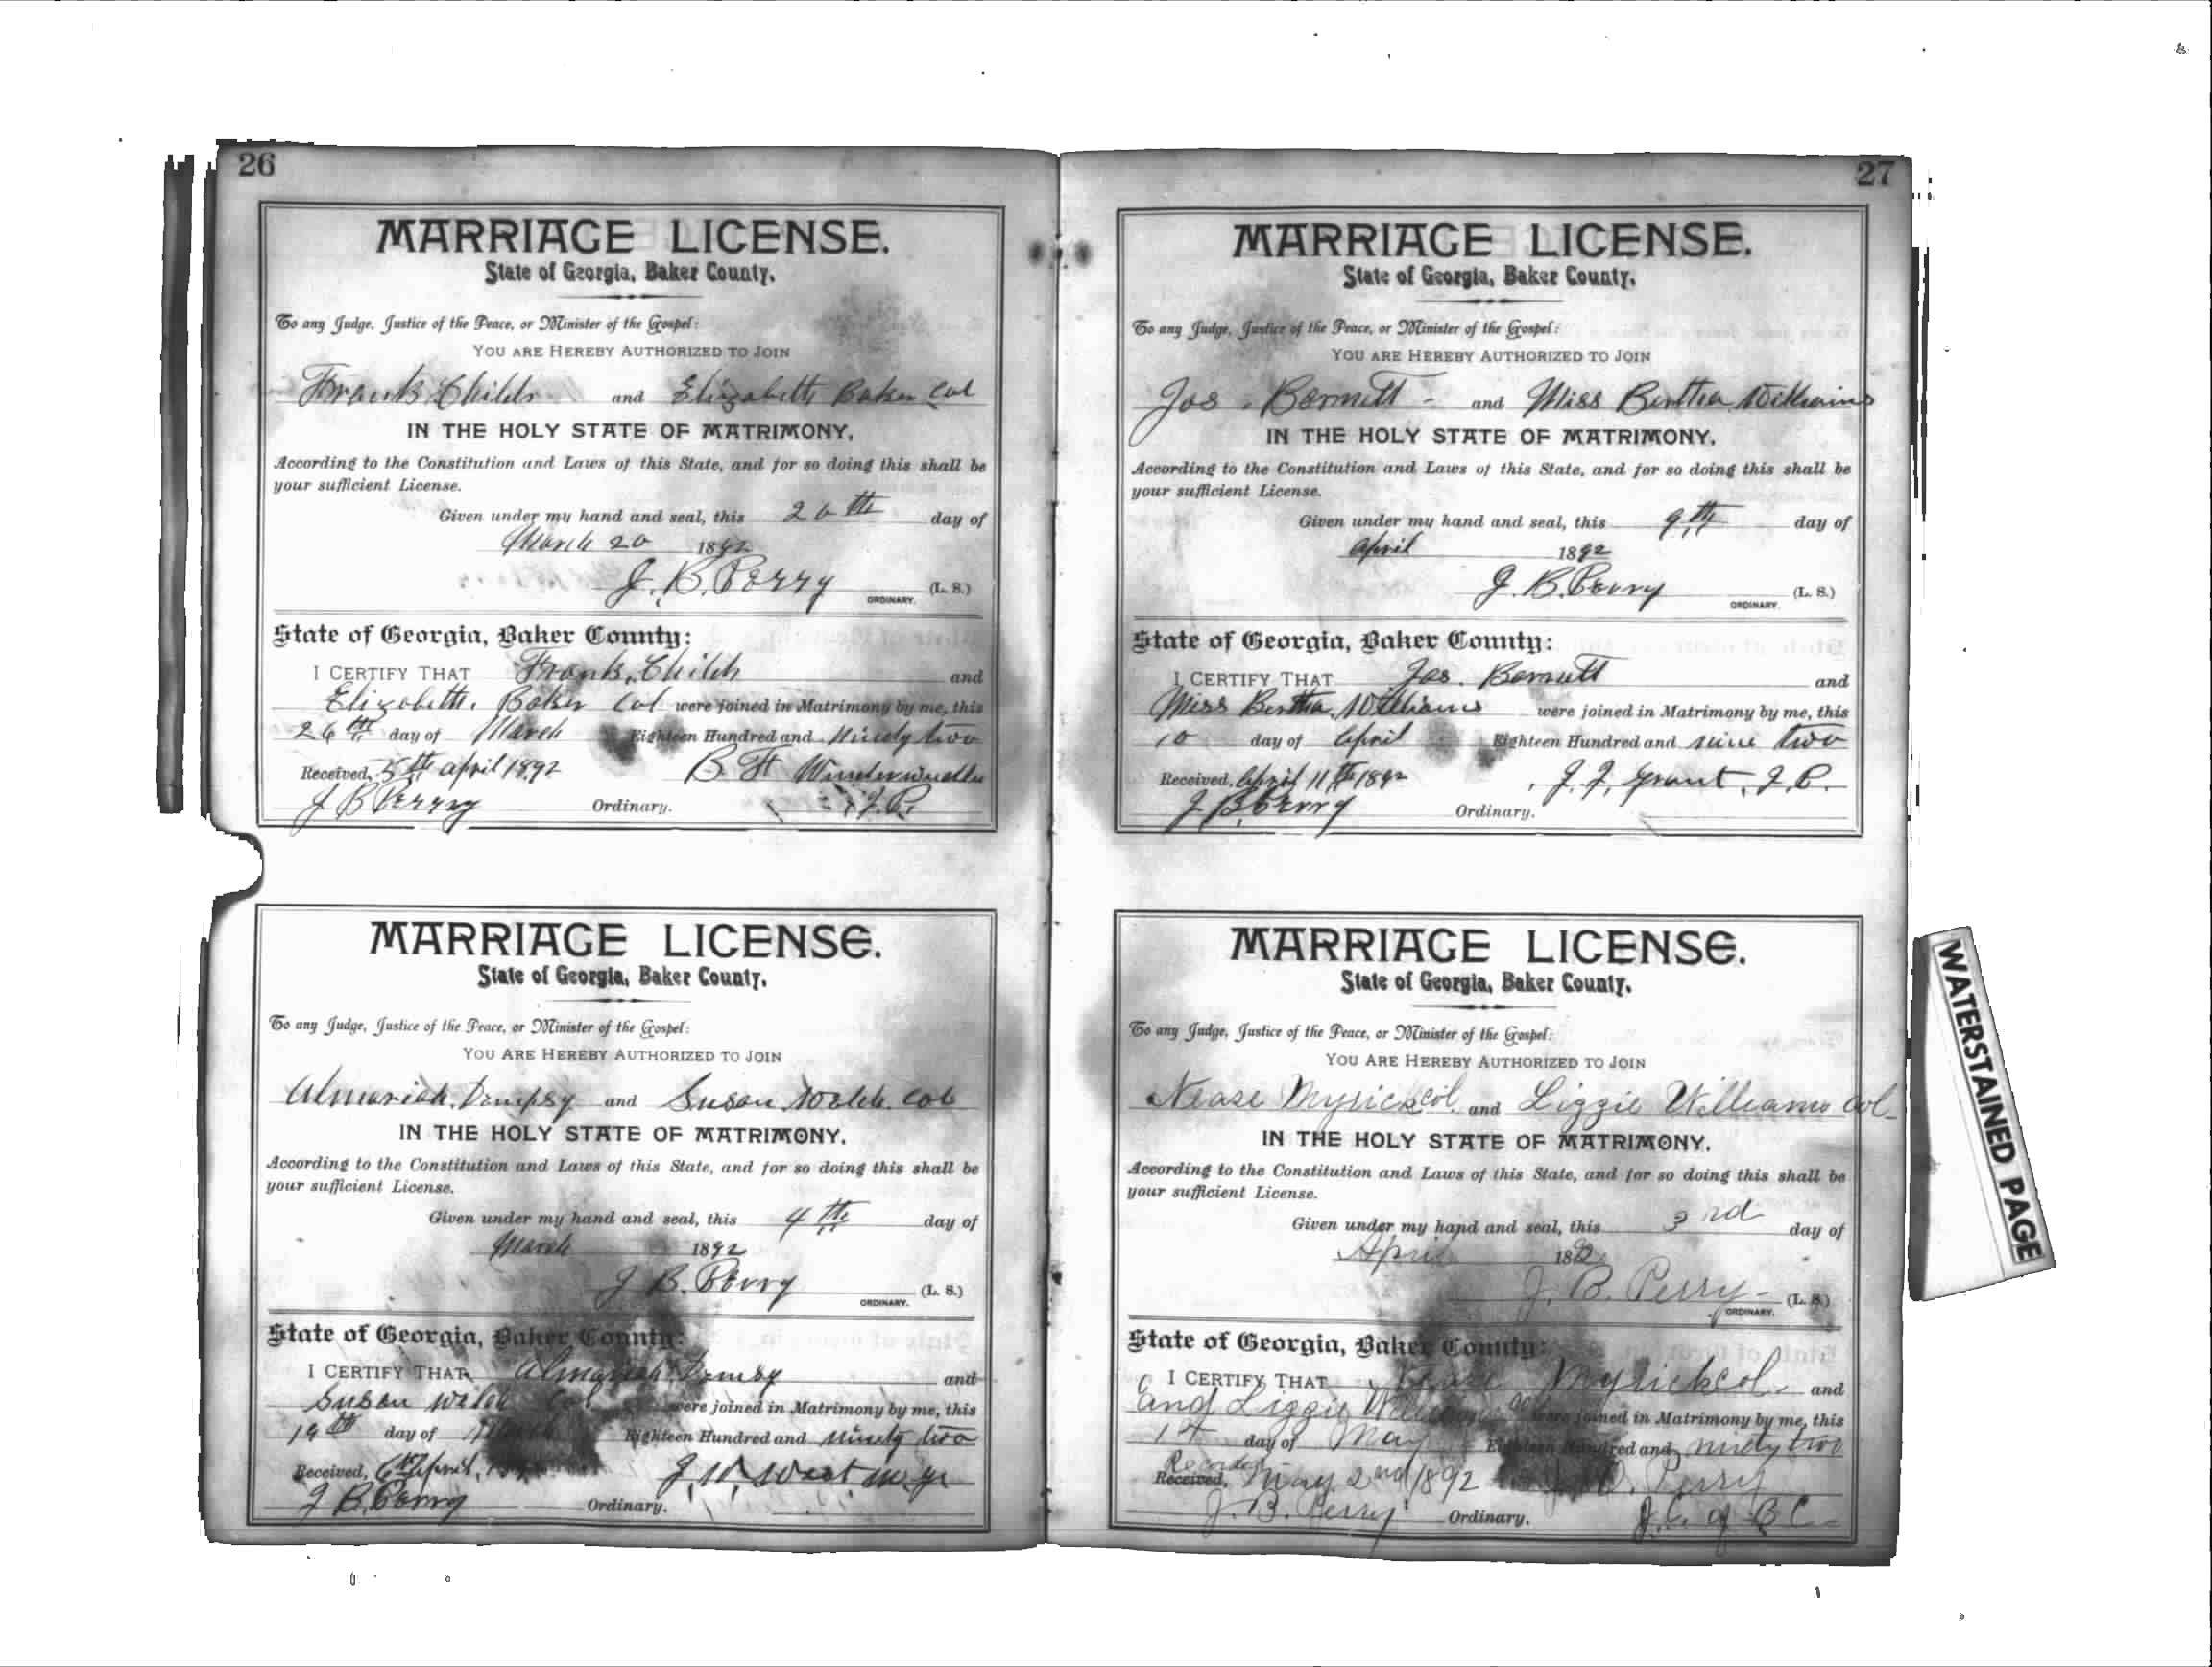 26
MARRIAGE LICENSE.
State of Georgia, Baker County.
To any Judge, Justice of the Peace, or Minister of the Gospel:
YOU ARE HEREBY AUTHORIZED TO JOIN
Frank Childs and Elizabeth Baker Col
IN THE HOLY STATE OF MATRIMONY,
According to the Constitution and Laws of this State, and for so doing this shall be
your sufficient License.
Given under my hand and seal, this 26th day of
March 20 1892
J. B. Perry (L. S.)
ORDINARY.
State of Georgia, Baker County:
I CERTIFY THAT Frank Childs and
Elizabeth Baker Col were joined in Matrimony by me, this
26th day of March Eighteen Hundred and Ninety two
Received, 5th april 1892 B. H
J B Perry Ordinary. J. P.
MARRIAGE LICENSE.
State of Georgia, Baker County.
To any Judge, Justice of the Peace, or Minister of the Gospel:
YOU ARE HEREBY AUTHORIZED TO JOIN
Almariah Dempsy and Susan Col
IN THE HOLY STATE OF MATRIMONY,
According to the Constitution and Laws of this State, and for so doing this shall be
your sufficient License.
Given under my hand and seal, this 4th day of
March 1892
J B. Perry (L. S.)
ORDINARY.
State of Georgia, Baker County:
I CERTIFY THAT Almariah and
Susan Col were joined in Matrimony by me, this
19th day of March Eighteen Hundred and ninety two
Received, 6th April, J. W. West
J B. Perry Ordinary.
27
MARRIAGE LICENSE.
State of Georgia, Baker County.
To any Judge, Justice of the Peace, or Minister of the Gospel:
YOU ARE HEREBY AUTHORIZED TO JOIN
Jos. Bennett and Miss Bertha Williams
IN THE HOLY STATE OF MATRIMONY,
According to the Constitution and Laws of this State, and for so doing this shall be
your sufficient License.
Given under my hand and seal, this 9th day of
april 1892
J. B. Perry (L. S.)
ORDINARY.
State of Georgia, Baker County:
I CERTIFY THAT Jos. Bennett and
Miss Bertha Williams were joined in Matrimony by me, this
10 day of April Eighteen Hundred and nine two
Received, April 11th 1892 J. J. Grant, J. P.
J B. Perry Ordinary.
MARRIAGE LICENSE.
State of Georgia, Baker County.
To any Judge, Justice of the Peace, or Minister of the Gospel:
YOU ARE HEREBY AUTHORIZED TO JOIN
Nease Myrick col. and Lizzie Williams Col-
IN THE HOLY STATE OF MATRIMONY,
According to the Constitution and Laws of this State, and for so doing this shall be
your sufficient License.
Given under my hand and seal, this 3rd day of
April 1892
J. B. Perry- (L. S.)
ORDINARY.
State of Georgia, Baker County:
I CERTIFY THAT Nease Myrick col. and
and Lizzie Williams col were joined in Matrimony by me, this
1st day of May Eighteen Hundred and ninety two
Recorded
Received, May 2nd 1892 Perry
J. B. Perry Ordinary. J.C. of B C-
WATERSTAINED PAGE